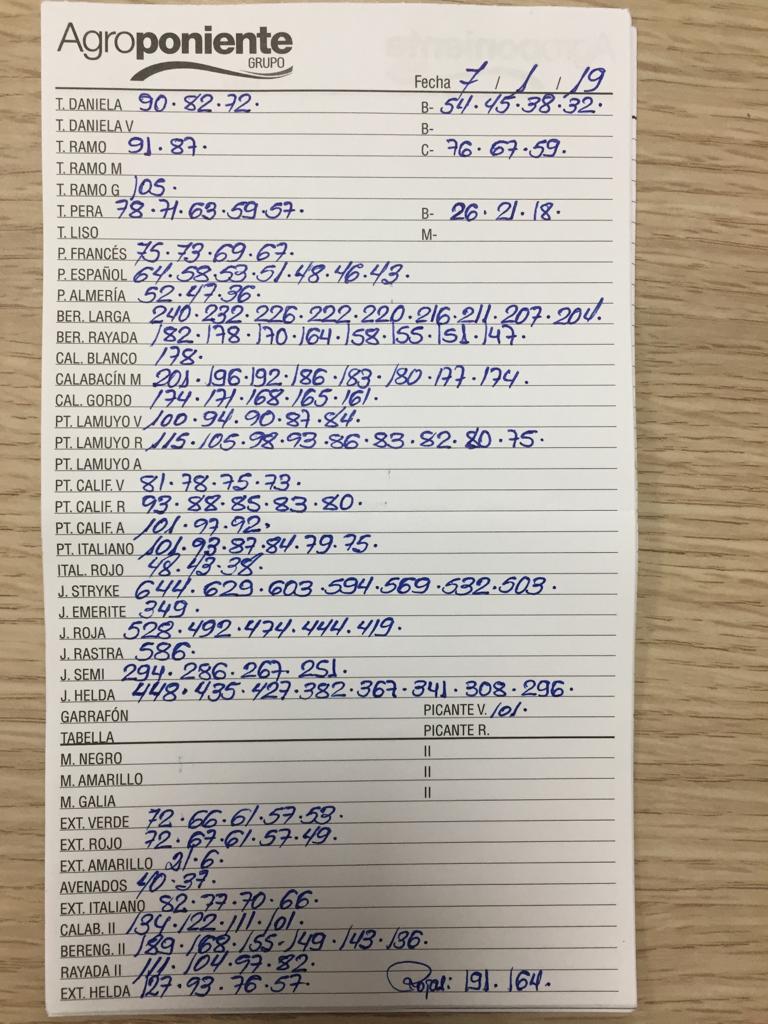 Agroponiente
GRUPO
Fecha 7 / 1 / 19
T. DANIELA 90. 82. 72. B- 54. 45. 38. 32.
T. DANIELA V B-
T. RAMO 91. 87. C- 76. 67. 59.
T. RAMO M
T. RAMO G 105.
T. PERA 78. 71. 63. 59. 57. B- 26. 21. 18.
T. LISO M-
P. FRANCÉS 75. 73. 69. 67.
P. ESPAÑOL 64. 58. 53. 51. 48. 46. 43.
P. ALMERÍA 52. 47. 36.
BER. LARGA 240. 232. 226. 222. 220. 216. 211. 207. 204.
BER. RAYADA 182. 178. 170. 164. 158. 155. 151. 147.
CAL. BLANCO 178.
CALABACÍN M 201. 196. 192. 186. 183. 180. 177. 174.
CAL. GORDO 174. 171. 168. 165. 161.
PT. LAMUYO V 100. 94. 90. 87. 84.
PT. LAMUYO R 115. 105. 98. 93. 86. 83. 82. 80. 75.
PT. LAMUYO A
PT. CALIF. V 81. 78. 75. 73.
PT. CALIF. R 93. 88. 85. 83. 80.
PT. CALIF. A 101. 97. 92.
PT. ITALIANO 101. 93. 87. 84. 79. 75.
ITAL. ROJO 48. 43. 38.
J. STRYKE 644. 629. 603. 594. 569. 532. 503.
J. EMERITE 349.
J. ROJA 528. 492. 474. 444. 419.
J. RASTRA 586.
J. SEMI 294. 286. 267. 251.
J. HELDA 448. 435. 427. 382. 367. 341. 308. 296.
GARRAFÓN PICANTE V. 101.
TABELLA PICANTE R.
M. NEGRO II
M. AMARILLO II
M. GALIA II
EXT. VERDE 72. 66. 61. 57. 53.
EXT. ROJO 72. 67. 61. 57. 49.
EXT. AMARILLO 21. 6.
AVENADOS 40. 37.
EXT. ITALIANO 82. 77. 70. 66.
CALAB. II 134. 122. 111. 101.
BERENG. II 189. 168. 155. 149. 143. 136.
RAYADA II 111. 104. 97. 82.
EXT. HELDA 127. 93. 76. 57. 191. 164.